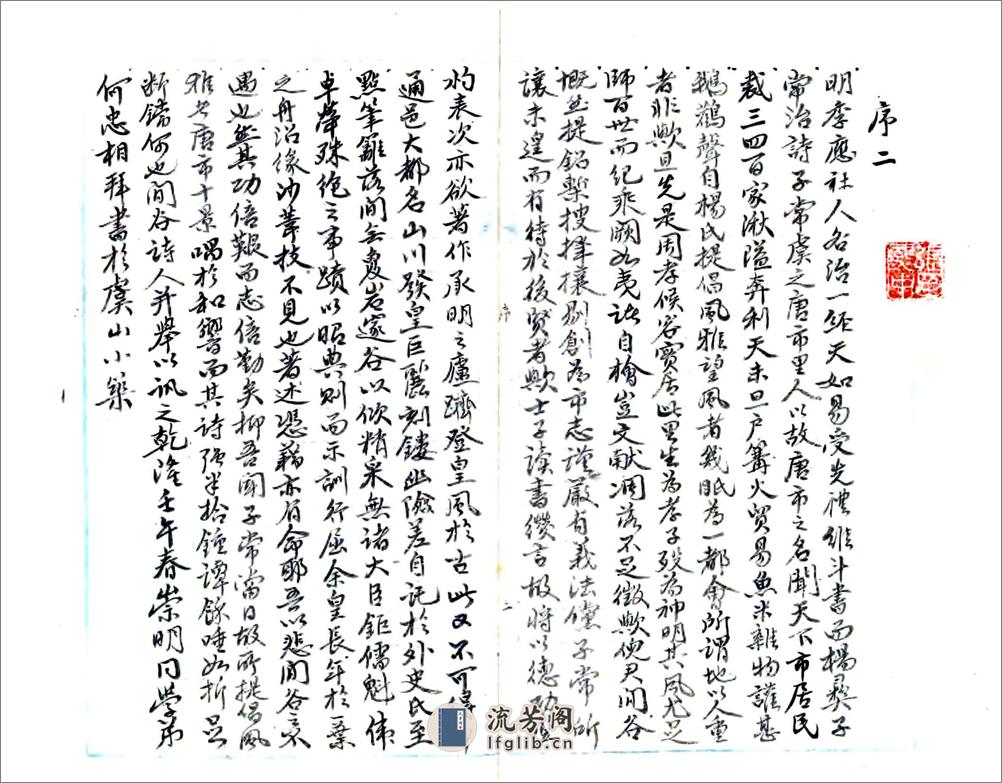 序二
明季應社人各治一經天如易受先禮維斗書而楊彝子
常治詩子常虞之唐市里人以故唐市之名聞天下市居民
裁三四百家湫隘奔利天未旦戶篝火貿易魚米雜物讙甚
鵝鸛聲自楊氏提倡風雅望風者我眂為一都會所謂地以人重
者非歟且先是周孝侯客實居此里生為孝子歿為神明其風尤足
師百世而紀乘闕如夷訾自檜豈文獻凋落不足徵歟倪君間谷
慨然提鉛槧搜擇攘剔創為市志謹嚴有義法儻子常所
讓未遑而有待於後賢者歟士子讀書纘言故將以德功
灼表次亦欲著作承明之廬躋登皇風於古此又不可得
通邑大都名山川發皇巨麗刻鏤幽險差自託於外史氏至
點筆籬落間無處岩邃谷以倾精采無諸大臣鉅儒魁偉
卓犖殊絶之市蹟以昭典則而示訓行屈余皇長年於一葉
之舟沿緣沙葦技不見也著述憑藉亦有命耶吾以悲間谷之不
遇也然其功倍艱而志倍勤矣抑吾聞子常當日故所提倡風
雅者唐市十景喁於和響而其詩強半拾鍾譚餘唾如折足
斷鐺何也間谷詩人并舉以訊之乾隆壬午春崇明同學弟
何忠相拜書於虞山小築
序
二
流芳阁
lfglib.cn